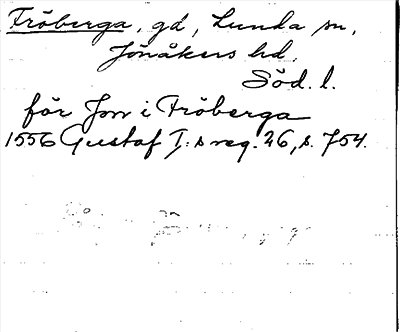 Fröberga, gd, Lunda sn,
Jönåkers hd,
Söd. l.
för Jon i Fröberga
1556 Gustaf I:s reg. 26, s. 754.